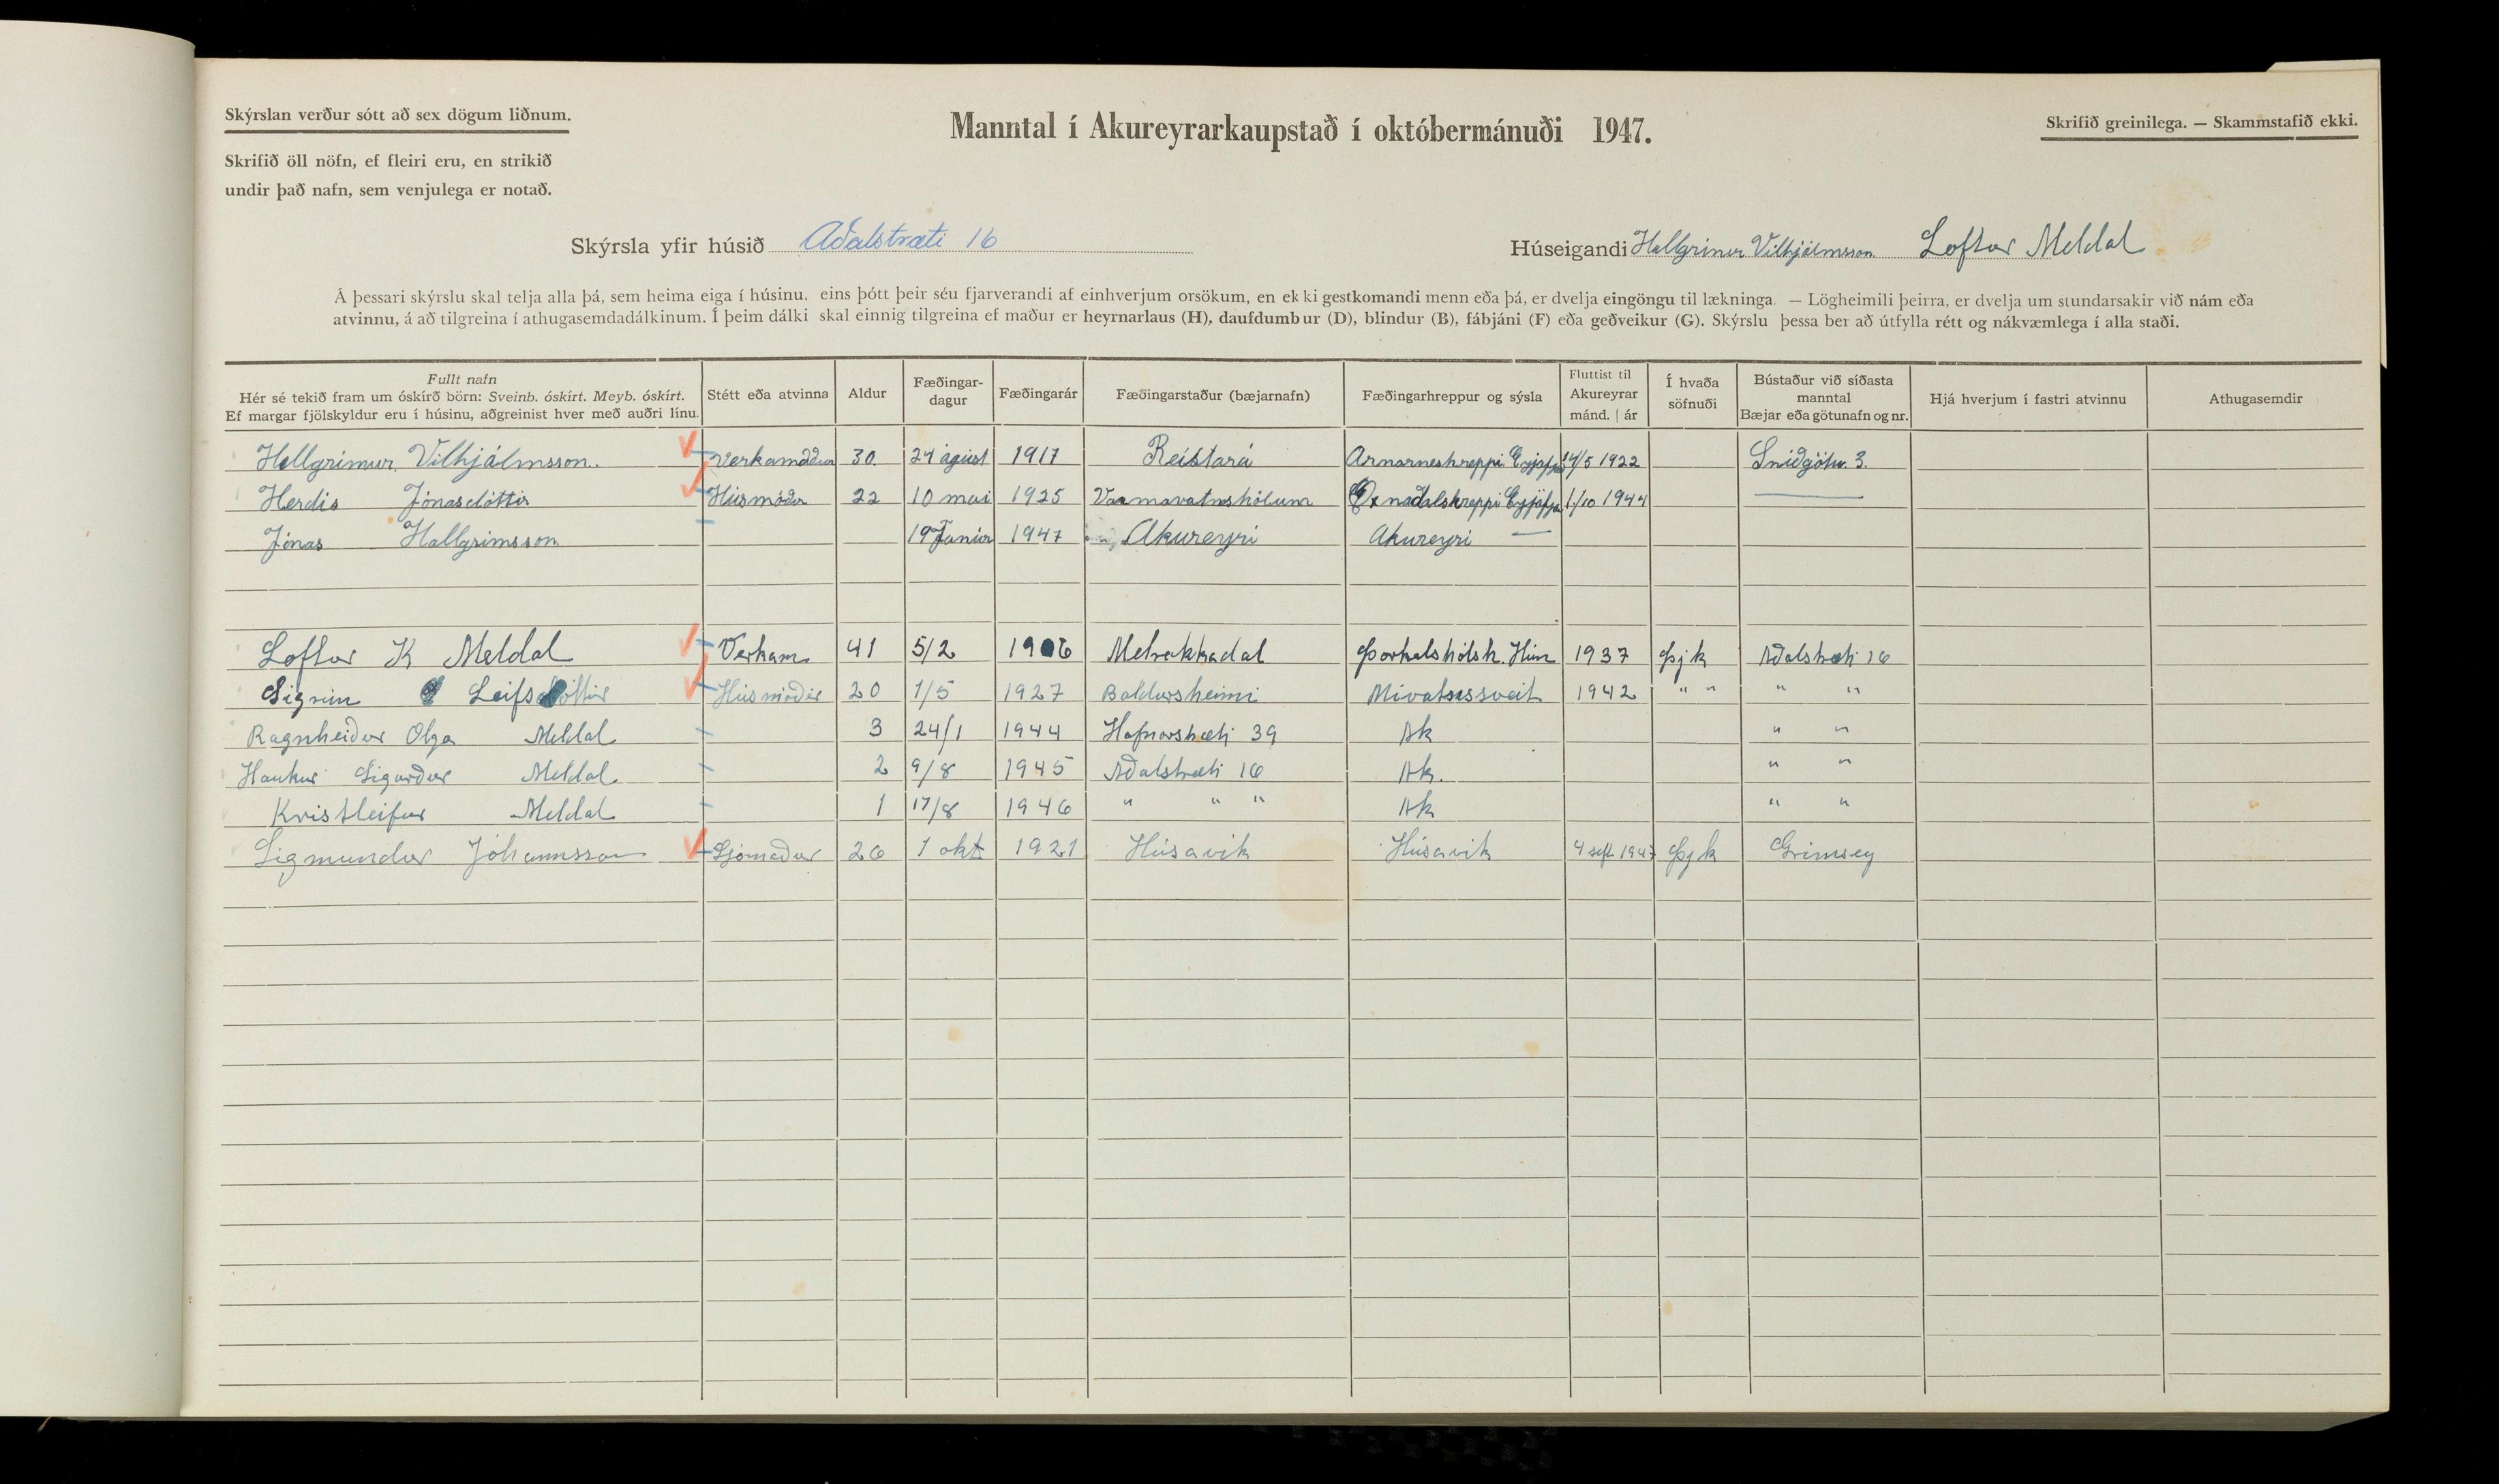 Skýrslan verður sótt að sex dögum liðnum.
Manntal í Akureyrarkaupstað í októbermánuði 1947.
Skrifið greinilega. — Skammstafið ekki.
Skrifið öll nöfn, ef fleiri eru, en strikið
undir það nafn, sem venjulega er notað.
Skýrsla yfir húsið Aðalstræti 16
Húseigandi Hallgrímur Vilhjálmsson Loftur Meldal
Á þessari skýrslu skal telja alla þá, sem heima eiga í húsinu, eins þótt þeir séu fjarverandi af einhverjum orsökum, en ekki gestkomandi menn eða þá, er dvelja eingöngu til lækninga. — Lögheimili þeirra, er dvelja um stundarsakir við nám eða
atvinnu, á að tilgreina í athugasemdadálkinum. Í þeim dálki skal einnig tilgreina ef maður er heyrnarlaus (H), daufdumbur (D), blindur (B), fábjáni (F) eða geðveikur (G). Skýrslu þessa ber að útfylla rétt og nákvæmlega í alla staði.
Fullt nafn
Hér sé tekið fram um óskírð börn: Sveinb. óskírt. Meyb. óskírt.
Ef margar fjölskyldur eru í húsinu, aðgreinist hver með auðri línu.
Stétt eða atvinna
Aldur
Fæðingar-
dagur
Fæðingarár
Fæðingarstaður (bæjarnafn)
Fæðingarhreppur og sýsla
Fluttist til
Akureyrar
mánd. | ár
Í hvaða
söfnuði
Bústaður við síðasta
manntal
Bæjar eða götunafn og nr.
Hjá hverjum í fastri atvinnu
Athugasemdir
Hallgrímur Vilhjálmsson Verkamaður 30 24 ágúst 1917 Reistará Arnarneshreppi 14/5 1922 Sniðgötu 3.
Herdís Jónasdóttir Húsmóðir 22 10 maí 1925 Vaamavatnshólum Öxnadalshreppi 1/10 1944 —
Jónas Hallgrímsson 19 Janúar 1947 Akureyri Akureyri —
Loftur K Meldal Verkam. 41 5/2 1906 Melrakkadal Þorkelshólsh. Hún 1937 Þjk Aðalstræti 16
Sigrún Leifsdóttir Húsmóðir 20 1/5 1927 Baldursheimi Mívatnssveit 1942 " " " "
Ragnheiður Olga Meldal 3 24/1 1944 Hafnarstræti 39 Ak " "
Haukur Sigurður Meldal 2 9/8 1945 Aðalstræti 16 Ak. " "
Kristleifur Meldal 1 17/8 1946 " " " Ak " "
Sigmundur Jóhannsson Sjómaður 26 1 okt 1921 Húsavík Húsavík 4 sept 1947 Þjk Grímsey